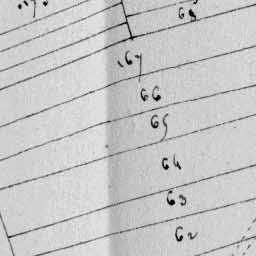 68
67
66
65
64
63
62